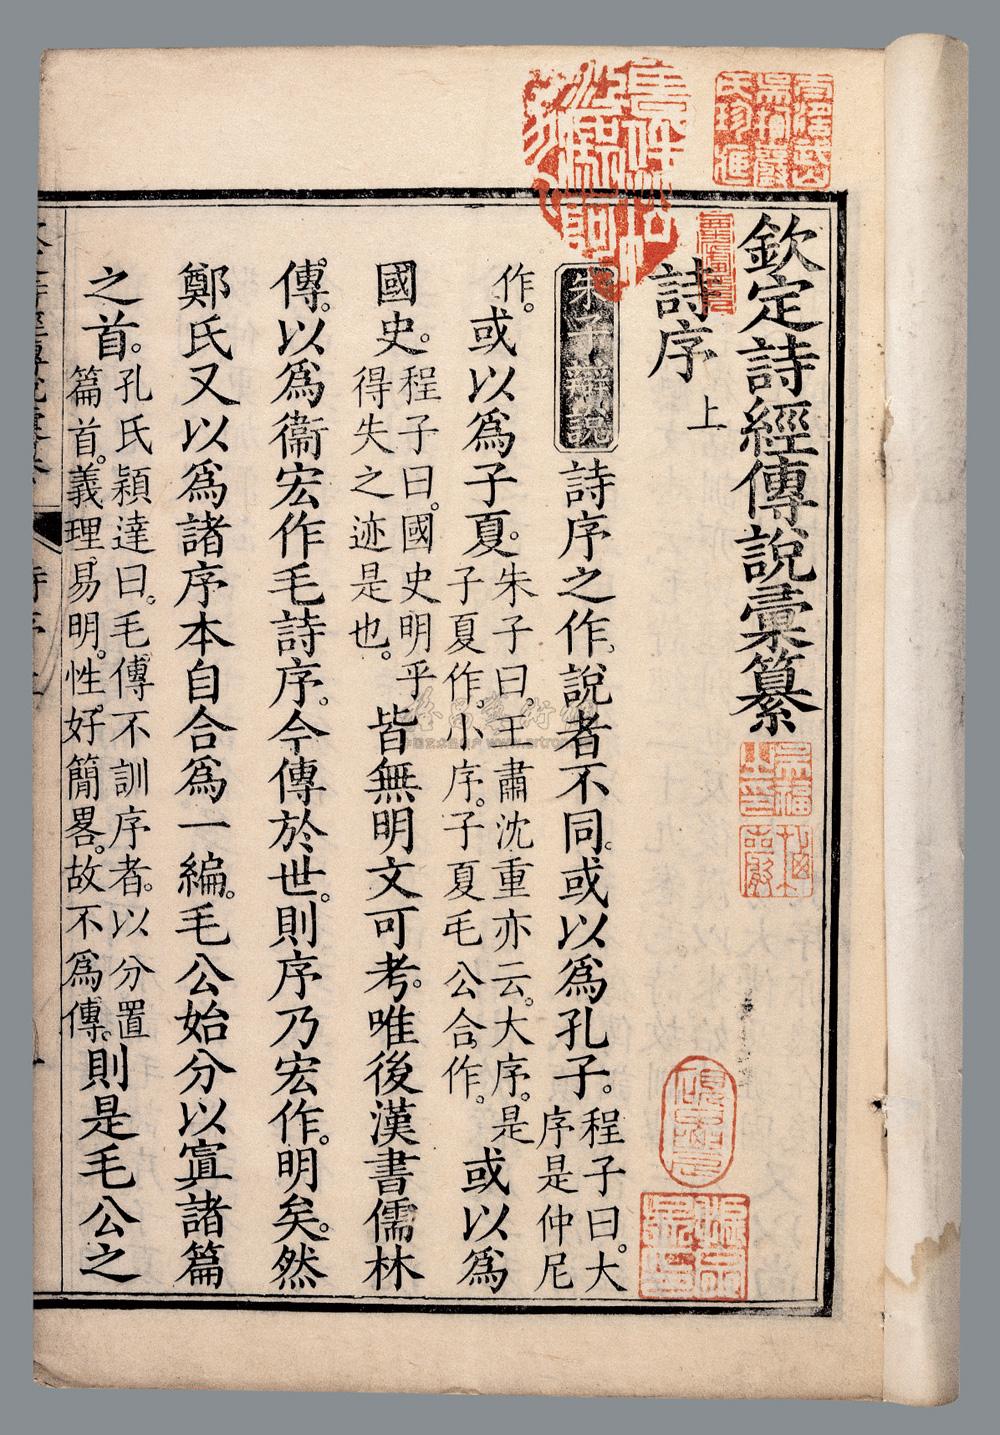 欽定詩經傳說彙纂
詩序上
朱子辯說 詩序之作。說者不同。或以為孔子。程子曰。大序是仲尼
作。或以為子夏。朱子曰。王肅沈重亦云。大序。是子夏作。小序。子夏毛公合作。或以為
國史。程子曰。國史明乎得失之迹是也。皆無明文可考。唯後漢書儒林
傳。以為衞宏作毛詩序。今傳於世。則序乃宏作。明矣。然
鄭氏又以為諸序本自合為一編。毛公始分以寘諸篇
之首。孔氏穎達曰。毛傳不訓序者。以分置篇首。義理易明。性好簡畧。故不為傳。則是毛公之